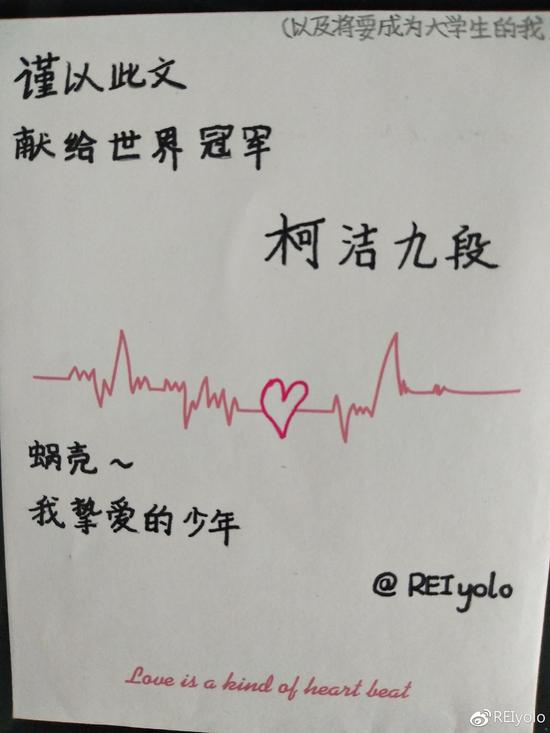 (以及将要成为大学生的我
谨以此文
献给世界冠军
柯洁九段
蜗壳~
我挚爱的少年
@REIyolo
Love is a kind of heart beat
REIyolo